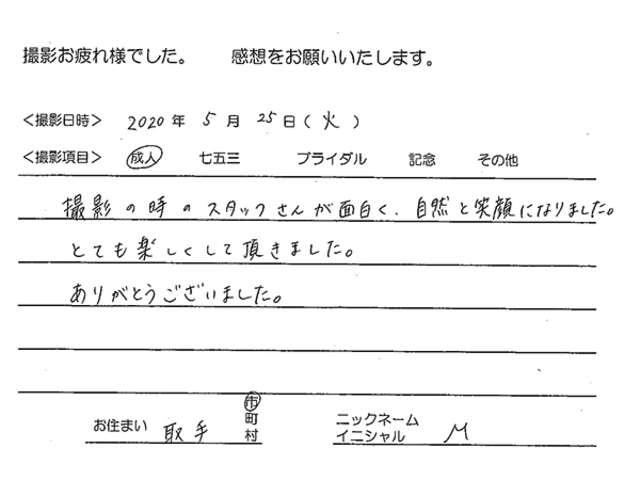 撮影お疲れ様でした。 感想をお願いいたします。
<撮影日時> 2020年 5月 25日(火)
<撮影項目> 成人 七五三 ブライダル 記念 その他
撮影の時のスタッフさんが面白く、自然と笑顔になりました。
とても楽しくして頂きました。
ありがとうございました。
お住まい 取手 市町村
ニックネーム イニシャル M